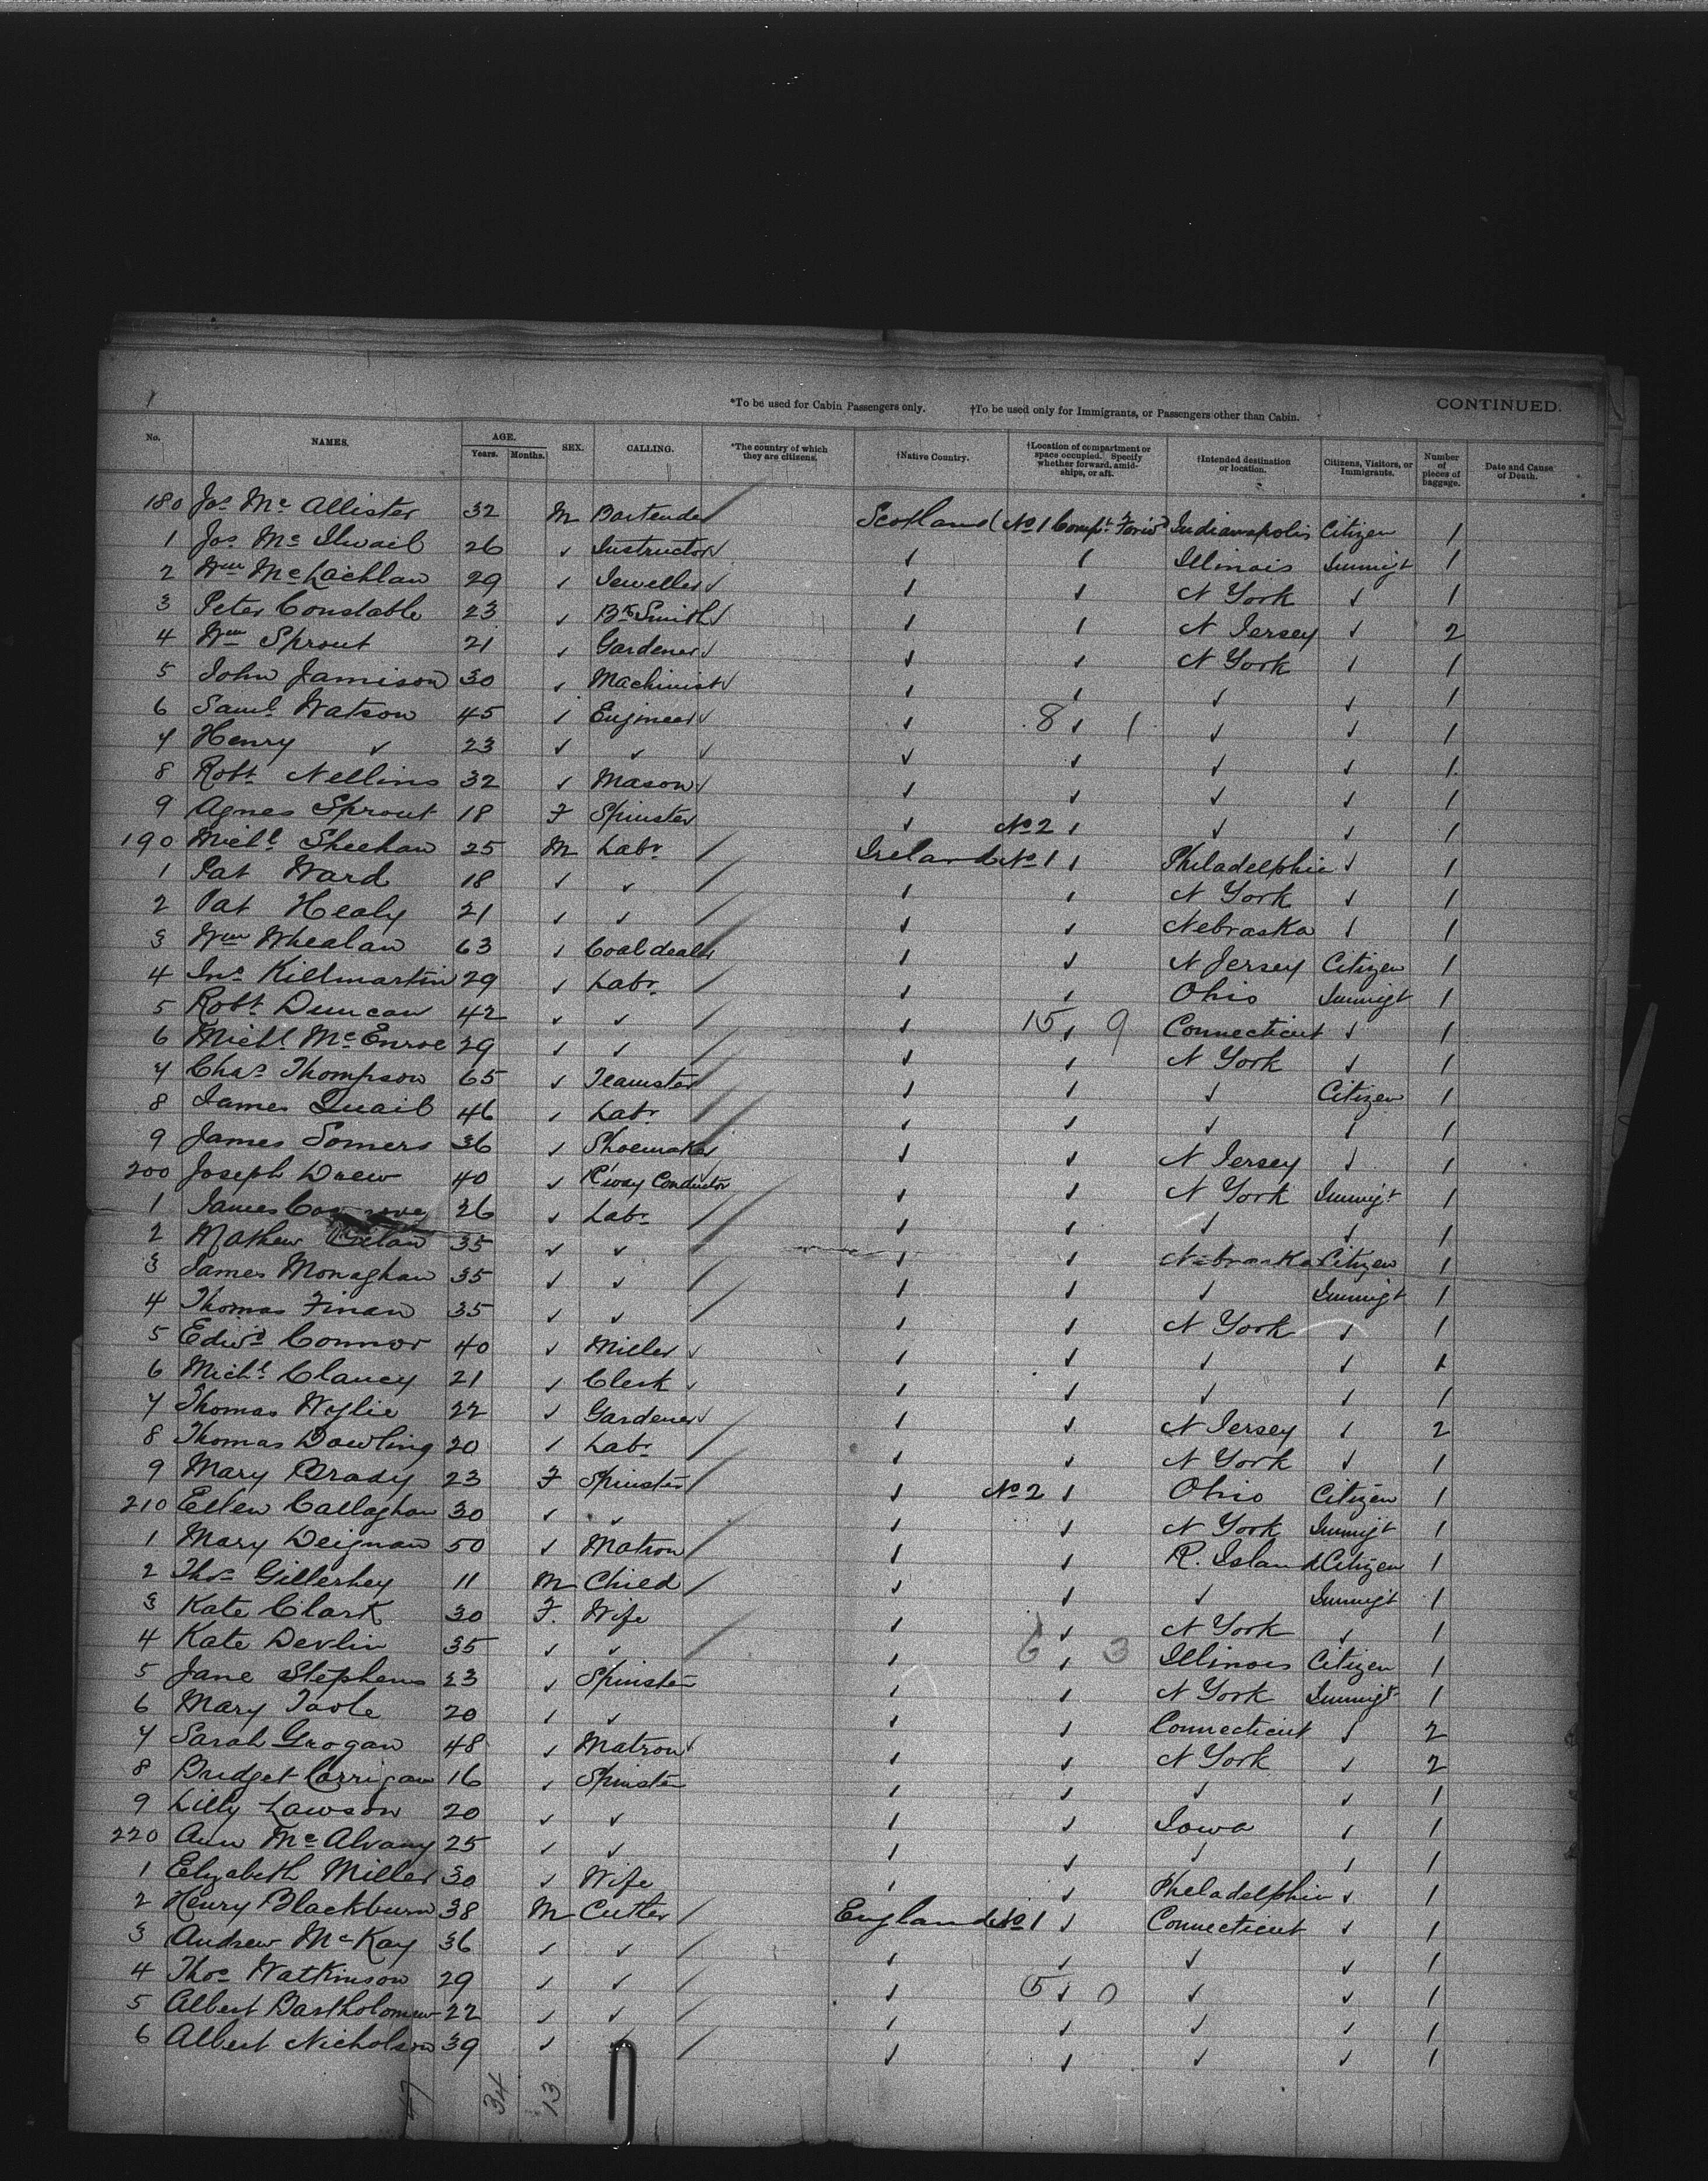 *To be used for Cabin Passengers only. †To be used only for Immigrants, or Passengers other than Cabin. CONTINUED.
No. NAMES. AGE. Years. Months. SEX. CALLING. *The country of which they are citizens. †Native Country. †Location of compartment or space occupied. Specify whether forward, amidships, or aft. †Intended destination or location. Citizens, Visitors, or Immigrants. Number of pieces of baggage. Date and Cause of Death.
180 Jos Mc Allister 32 M Bartender Scotland No 1 Compt Forwd Indianapolis Citizen 1
1 Jos Mc Ilwail 26 ✓ Instructor ✓ ✓ Illinois Immigt 1
2 Wm McLachlan 29 ✓ Jeweller ✓ ✓ N York ✓ 1
3 Peter Constable 23 ✓ Bk Smith ✓ ✓ N Jersey ✓ 2
4 Wm Sprout 21 ✓ Gardener ✓ ✓ N York ✓ 1
5 John Jamison 30 ✓ Machinist ✓ ✓ ✓ ✓ 1
6 Saml Watson 45 ✓ Engineer ✓ 8 ✓ 1 ✓ ✓ 1
7 Henry ✓ 23 ✓ ✓ ✓ ✓ ✓ ✓ 1
8 Robt Nellins 32 ✓ Mason ✓ ✓ ✓ ✓ 1
9 Agnes Sprout 18 F Spinster ✓ No 2 ✓ ✓ ✓ 1
190 Michl Sheehan 25 M Labr Ireland No 1 ✓ Philadelphia ✓ 1
1 Pat Ward 18 ✓ ✓ ✓ ✓ N York ✓ 1
2 Pat Healy 21 ✓ ✓ ✓ ✓ Nebraska ✓ 1
3 Wm Whealan 63 ✓ Coal dealer ✓ ✓ N Jersey Citizen 1
4 Jno Killmartin 29 ✓ Labr ✓ ✓ Ohio Immigt 1
5 Robt Duncan 42 ✓ ✓ ✓ 15 ✓ 9 Connecticut ✓ 1
6 Michl McEnroe 29 ✓ ✓ ✓ ✓ N York ✓ 1
7 Chas Thompson 65 ✓ Teamster ✓ ✓ ✓ Citizen 1
8 James Quail 46 ✓ Labr ✓ ✓ ✓ ✓ 1
9 James Somers 36 ✓ Shoemaker ✓ ✓ N Jersey ✓ 1
200 Joseph Drew 40 ✓ R'way Conductor ✓ ✓ N York Immigt 1
1 James 26 ✓ Labr ✓ ✓ ✓ ✓ 1
2 Mathew 35 ✓ ✓ ✓ ✓ Nebraska Citizen 1
3 James Monaghan 35 ✓ ✓ ✓ ✓ ✓ Immigt 1
4 Thomas Finan 35 ✓ ✓ ✓ ✓ N York ✓ 1
5 Edwd Connor 40 ✓ Miller ✓ ✓ ✓ ✓ 1
6 Michl Clancy 21 ✓ Clerk ✓ ✓ ✓ ✓ 1
7 Thomas Wylie 22 ✓ Gardener ✓ ✓ N Jersey ✓ 2
8 Thomas Dowling 20 ✓ Labr ✓ ✓ N York ✓ 1
9 Mary Brady 23 F Spinster ✓ No 2 ✓ Ohio Citizen 1
210 Ellen Callaghan 30 ✓ ✓ ✓ ✓ N York Immigt 1
1 Mary Deignan 50 ✓ Matron ✓ ✓ R. Island Citizen 1
2 Thos Gillerhey 11 M Child ✓ ✓ ✓ Immigt 1
3 Kate Clark 30 F. Wife ✓ ✓ N York ✓ 1
4 Kate Devlin 35 ✓ ✓ ✓ 6 ✓ 3 Illinois Citizen 1
5 Jane Stephens 23 ✓ Spinster ✓ ✓ N York Immigt 1
6 Mary Toole 20 ✓ ✓ ✓ ✓ Connecticut ✓ 2
7 Sarah Grogan 48 ✓ Matron ✓ ✓ N York ✓ 2
8 Bridget Corrigan 16 ✓ Spinster ✓ ✓ ✓ ✓ 1
9 Lilly Lawson 20 ✓ ✓ ✓ ✓ Iowa ✓ 1
220 Ann McAlvany 25 ✓ ✓ ✓ ✓ ✓ ✓ 1
1 Elizabeth Miller 30 ✓ Wife ✓ ✓ Philadelphia ✓ 1
2 Henry Blackburn 38 M Cutler England No 1 ✓ Connecticut ✓ 1
3 Andrew McKay 36 ✓ ✓ ✓ ✓ ✓ ✓ 1
4 Thos Watkinson 29 ✓ ✓ ✓ 5 ✓ 0 ✓ ✓ 1
5 Albert Bartholomew 22 ✓ ✓ ✓ ✓ ✓ ✓ 1
6 Albert Nicholson 39 ✓ ✓ ✓ ✓ ✓ ✓ 1
47 34 13